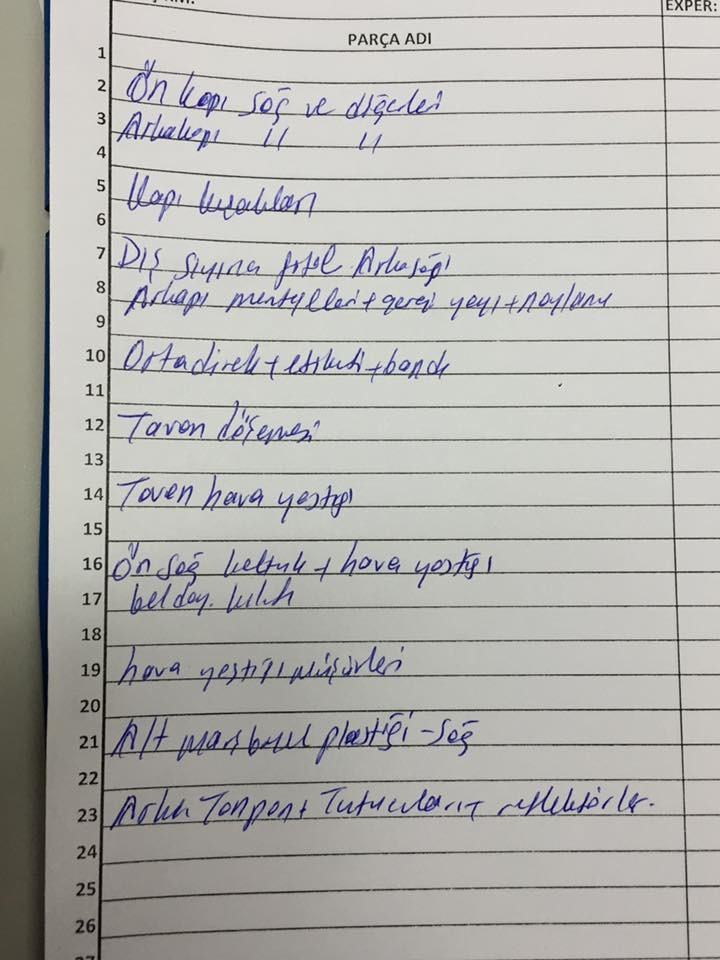 EXPER:
PARÇA ADI
1
2 Ön kapı sağ ve diğerleri
3 Arkakapı " "
4
5 Kapı kuşakları
6
7 Dış sıyırma fitil Arkasağı
8 Arkapı menteşeleri + gergi yayı + naylonu
9
10 Ortadirek + etiketi + bandı
11
12 Tavan döşemesi
13
14 Tavan hava yastığı
15
16 Ön sağ koltuk + hava yastığı
17 bel day.
18
19 hava yastığı müşürleri
20
21 Alt marşbiyel plastiği - sağ
22
23 Arka Tanpon + Tutucuları + reflektörler.
24
25
26